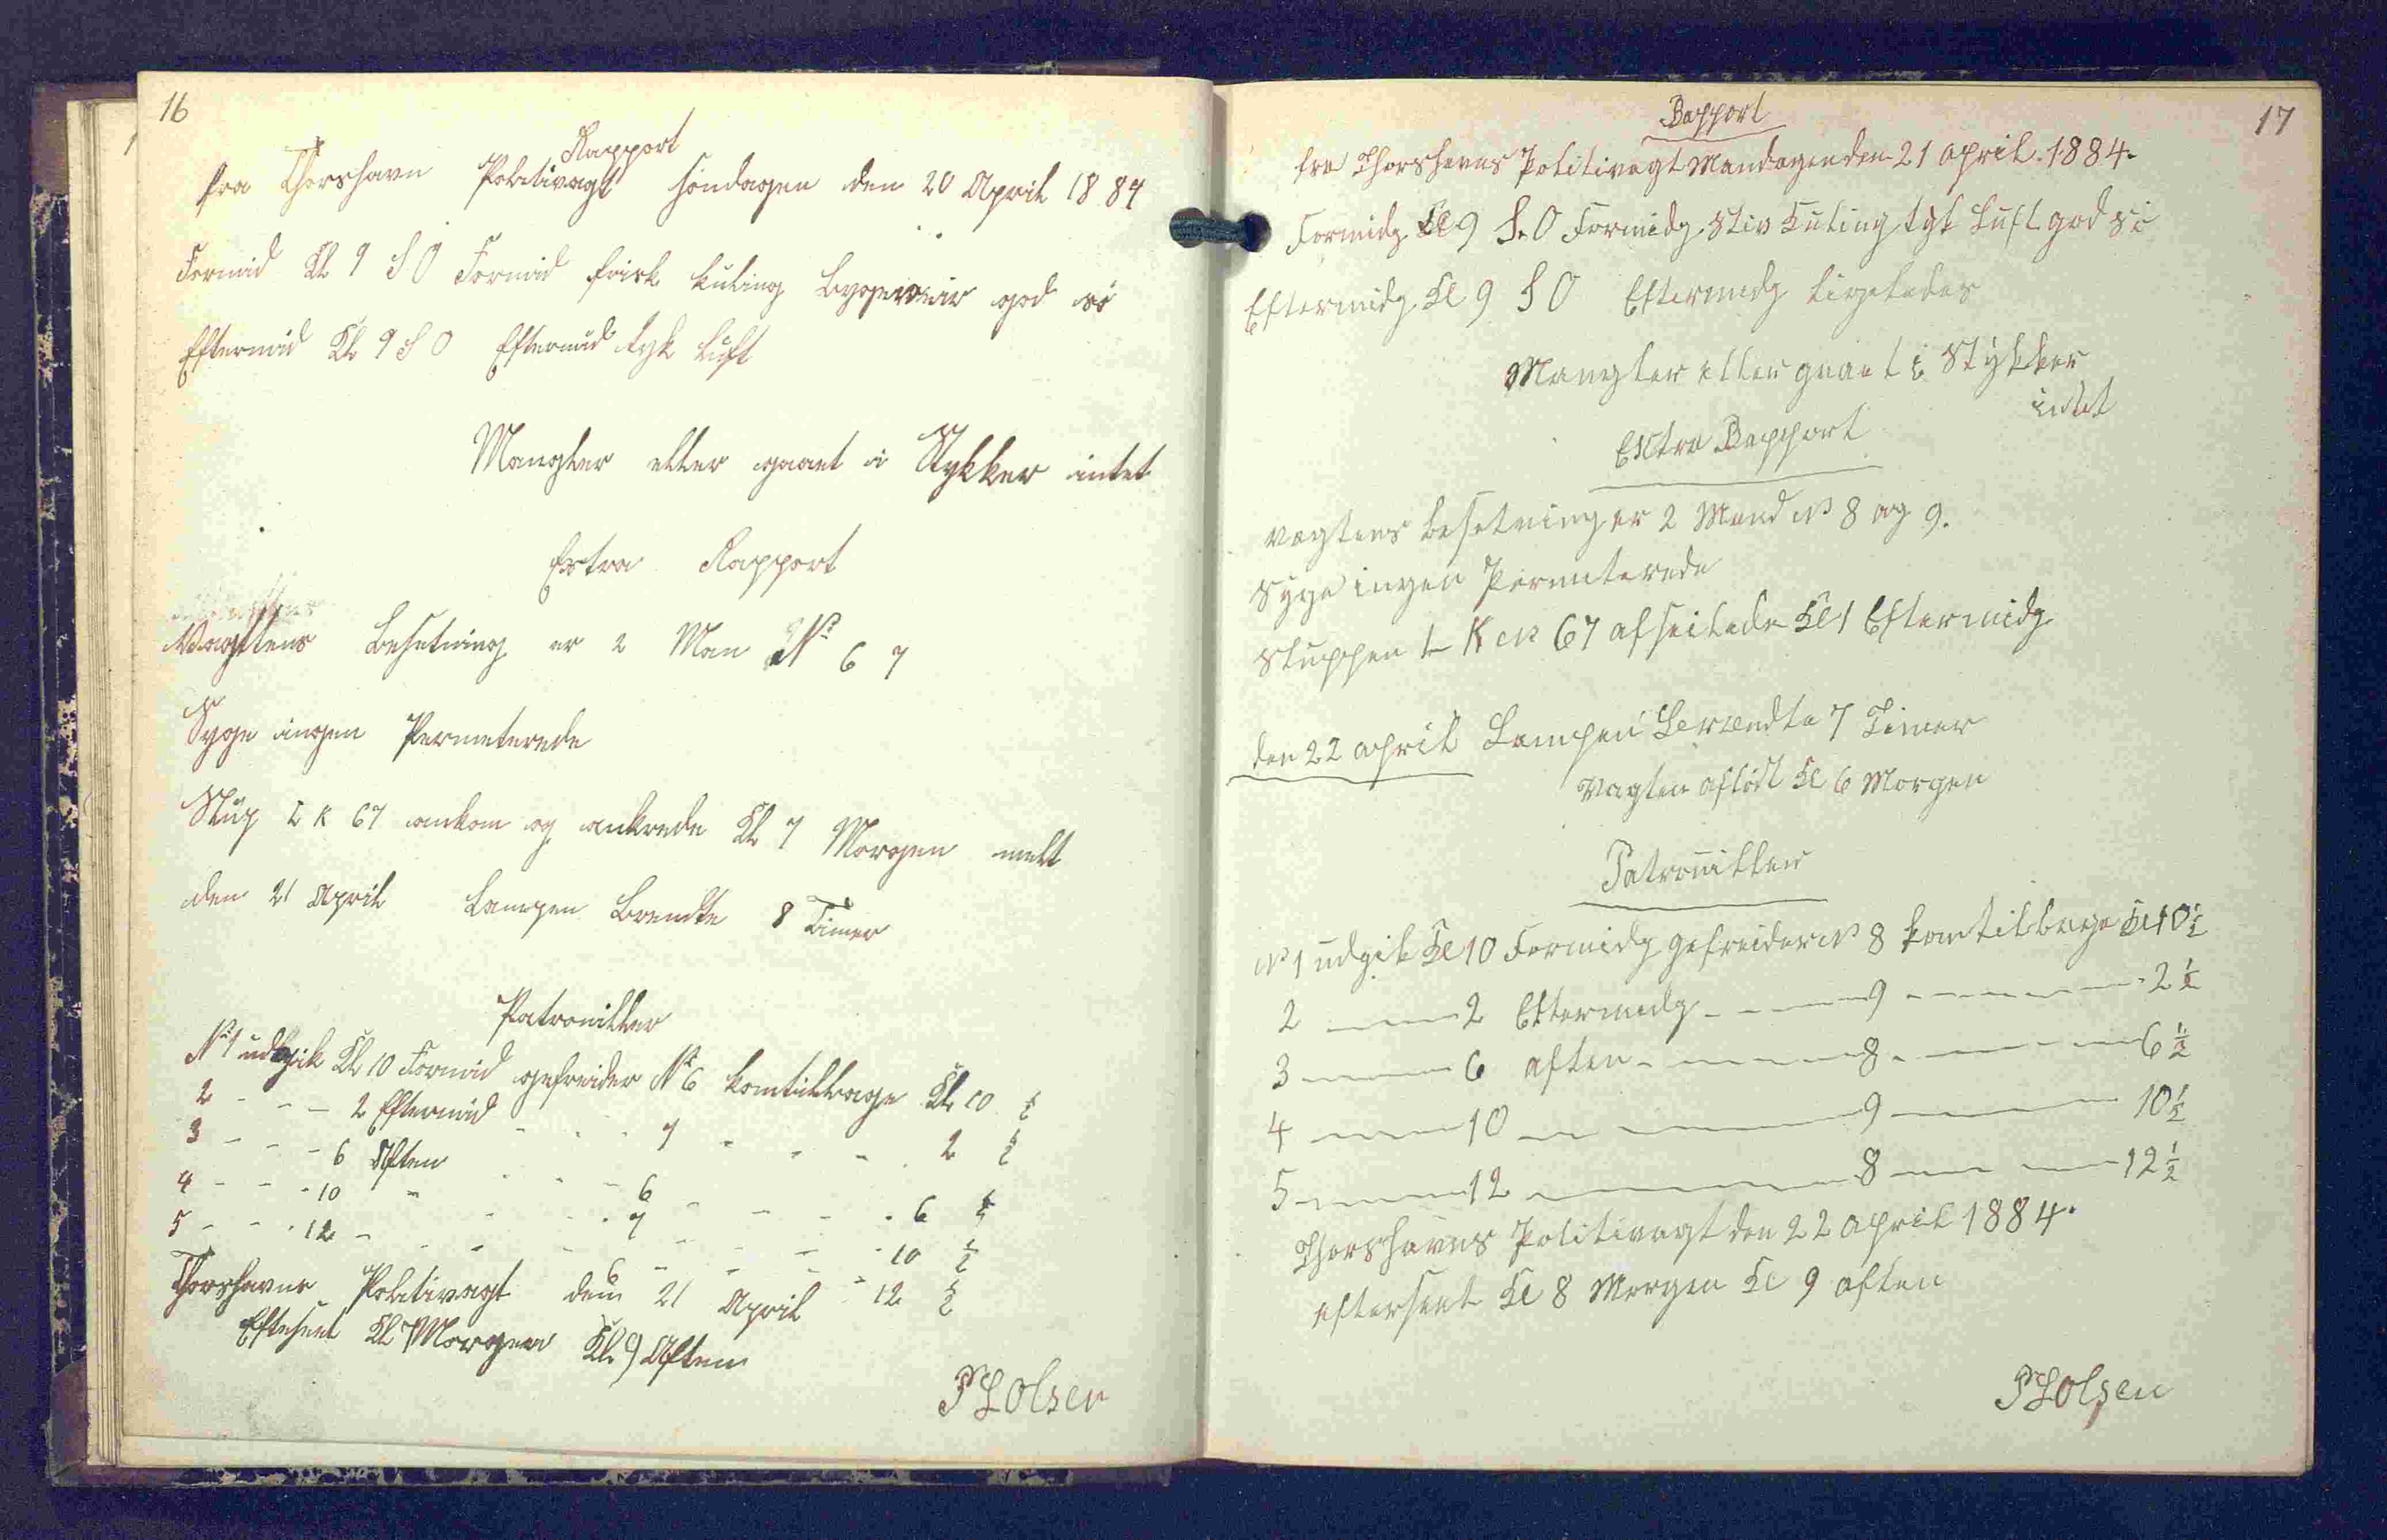 16
Rapport
fra Thorshavn Politivagt Söndagen den 20 April 1884
Formid Kl 9 S O Formid frisk kuling bygeveir god sö
Eftermid Kl 9 S O Eftermid tyk luft
Mangler eller gaaet i Stykker intet
Extra Rapport
Vagtens besetning er 2 Man No 6 7
Syge ingen Permeterede
Slup T K 67 ankom og ankrede Kl 7 Morgen
den 21 April Lampen brendte 8 Timer
Patrouiller
No 1 udgik Kl 10 Formid gefreider No 6 kom tilbage Kl 10 ½
2 - - - 2 Eftermid - - - 7 - - - 2 ½
3 - - - 6 Aften - - - 6 - - - 6 ½
4 - - - 10 - - - 7 - - - 10 ½
5 - - - 12 - - - 6 - - - 12 ½
Thorshavns Politivagt den 21 April
Efterseet Kl 7 Morgen Kl 9 Aften
P L Olsen
17
Rapport
fra Thorshavns Politivagt Mandagen den 21 April 1884.
Formidg Kl 9 S.O Formidg stiv Kuling tyk luft god sö
Eftermidg Kl 9 S O Eftermidg ligeledes
Mangler eller gaaet i Stykker
intet
Extra Rapport
Vagtens besetning er 2 Mand No 8 og 9.
Syge ingen Permiterede
Sluppen T K No 67 afseilede Kl 1 Eftermidg
den 22 April Lampen brændte 7 Timer
Vagten aflöst Kl 6 Morgen
Patrouiller
No 1 udgik Kl 10 Formidg gefreider No 8 kom tilbage Kl 10½
2 - - - 2 Eftermidg - - - 9 - - - 2½
3 - - - 6 aften - - - 8 - - - 6½
4 - - - 10 - - - 9 - - - 10½
5 - - - 12 - - - 8 - - - 12½
Thorshavns Politivagt den 22 April 1884.
efterseet Kl 8 Morgen Kl 9 aften
P L Olsen